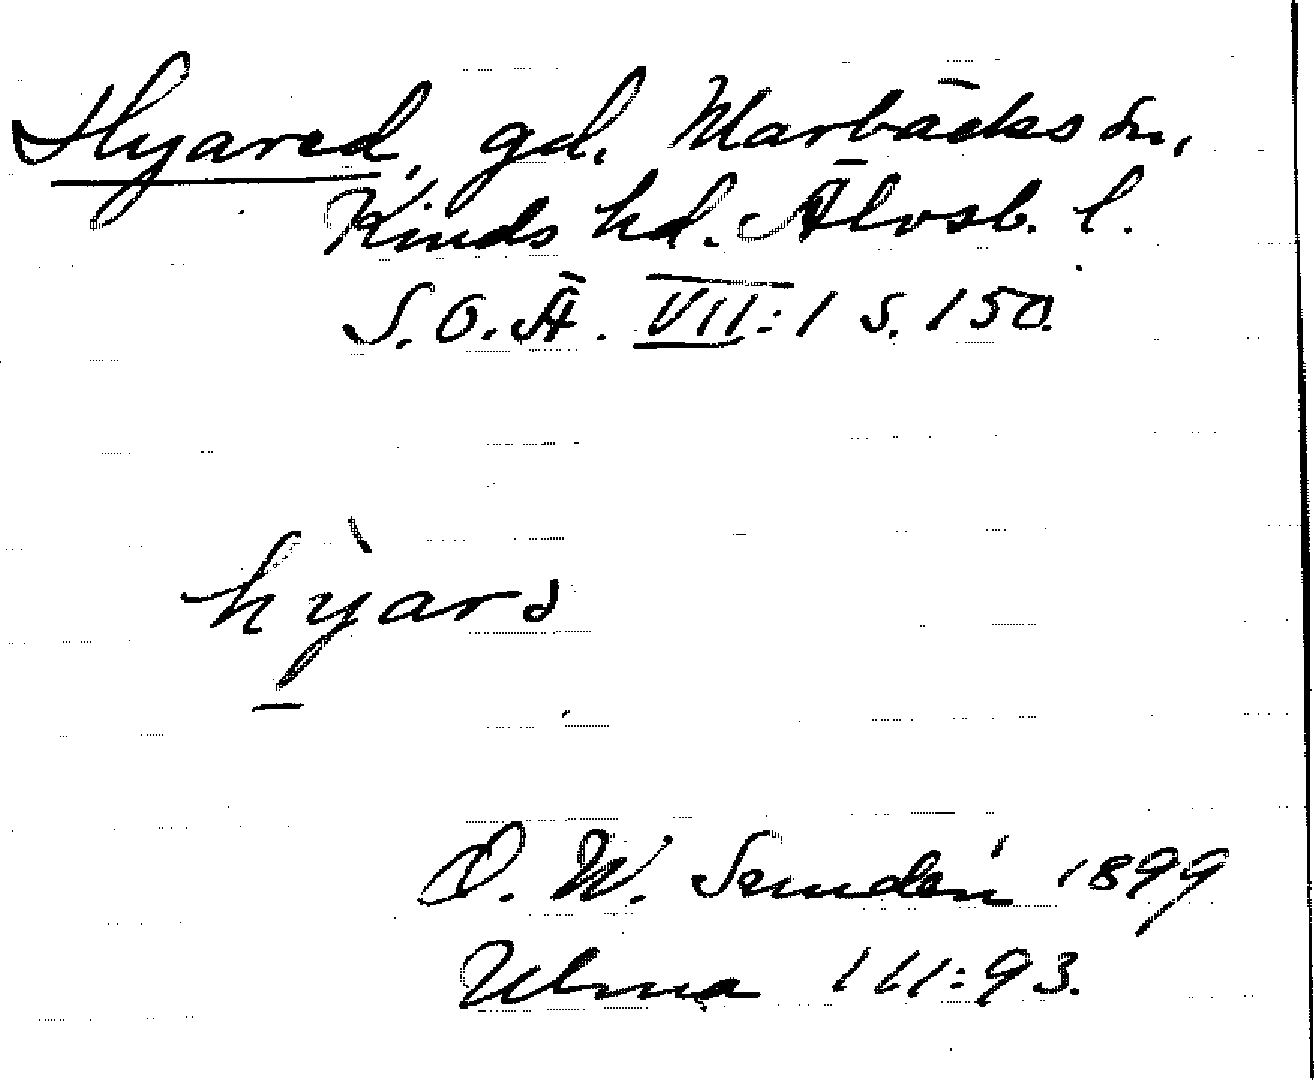 Hyared, gd. Marbäcks sn,
Kinds hd. Älvsb. l.
S.O.Ä. VII:1 s. 150.
hỳarɔ
O. W. 1899
Ulma 111:93.